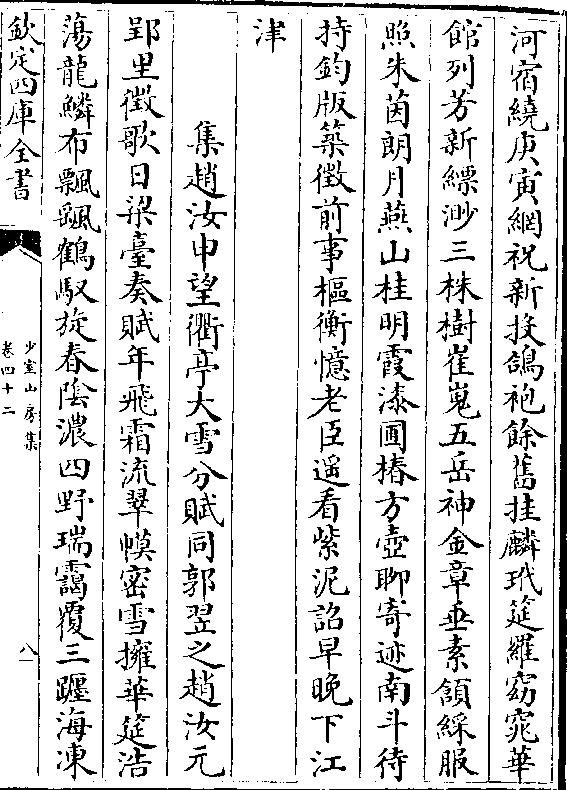 河宿繞庚寅網祝新投鴿袍餘舊挂麟玳筵羅窈窕華
館列芳新縹渺三株樹崔嵬五岳神金章垂素頷綵服
照朱茵朗月燕山桂明霞漆圃椿方壺聊寄迹南斗待
持鈞版築徴前事樞衡憶老臣遥看紫泥詔早晚下江
津
集趙汝申望衢亭大雪分賦同郭翌之趙汝元
郢里徴歌日梁臺奏賦年飛霜流翠幙密雪擁華筵浩
蕩龍鱗布飄颻鶴馭旋春陰濃四野瑞靄覆三躔海凍
欽定四庫全書
少室山房集
卷四十二
八